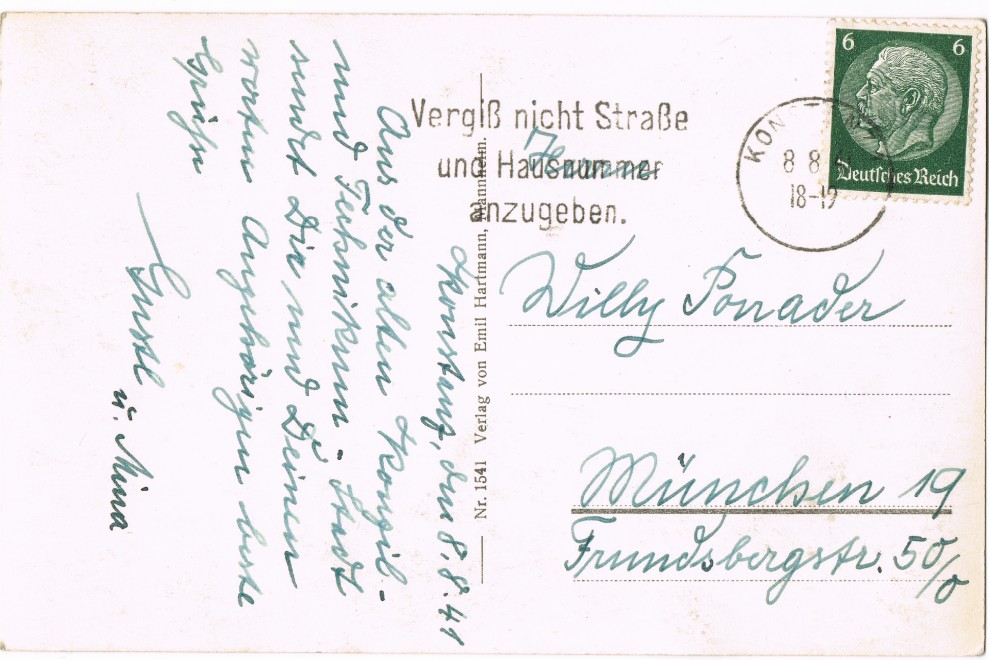 Konstanz, den 8.8.41
Aus der alten Konzil-
und Technikum-Stadt
sendet Dir und Deinen
werten Angehörigen beste
Grüße
Gustl
u. Mina
Nr. 1541 Verlag von Emil Hartmann, Mannheim.
Vergiß nicht Straße
und Hausnummer
anzugeben.
KON
8 8
18-19
6 6
Deutsches Reich
Herrn
Willy Ponader
München 19
Frundsbergstr. 50/0